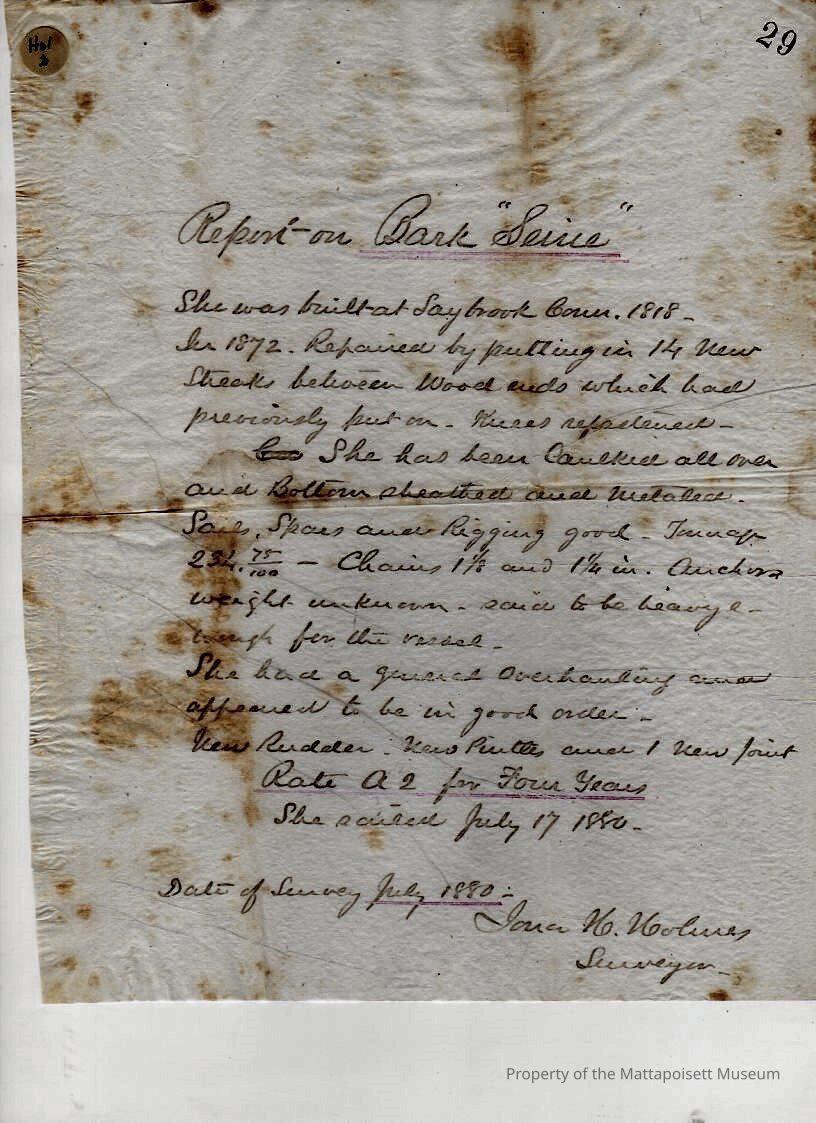 Hol
3
29
Report on Bark "Seine"
She was built at Saybrook Conn. 1818 -
In 1872. Repaired by putting in 14 New
Streaks between Wood ends which had
previously put on - Knees refastened -
She has been Caulked all over
and Bottom sheathed and Metaled.
Sails, Spars and Rigging good -
234. 75/100 - Chains 1 1/8 and 1 1/4 in. Anchors
weight unknown - said to be heavy e-
nough for the vessel -
She had a general Overhauling and
appeared to be in good order -
New Rudder. New Pintles and 1 New
Rate A 2 for Four Years
She sailed July 17 1880 -
Date of Survey July 1880 -
H. Holmes
Surveyor -
Property of the Mattapoisett Museum